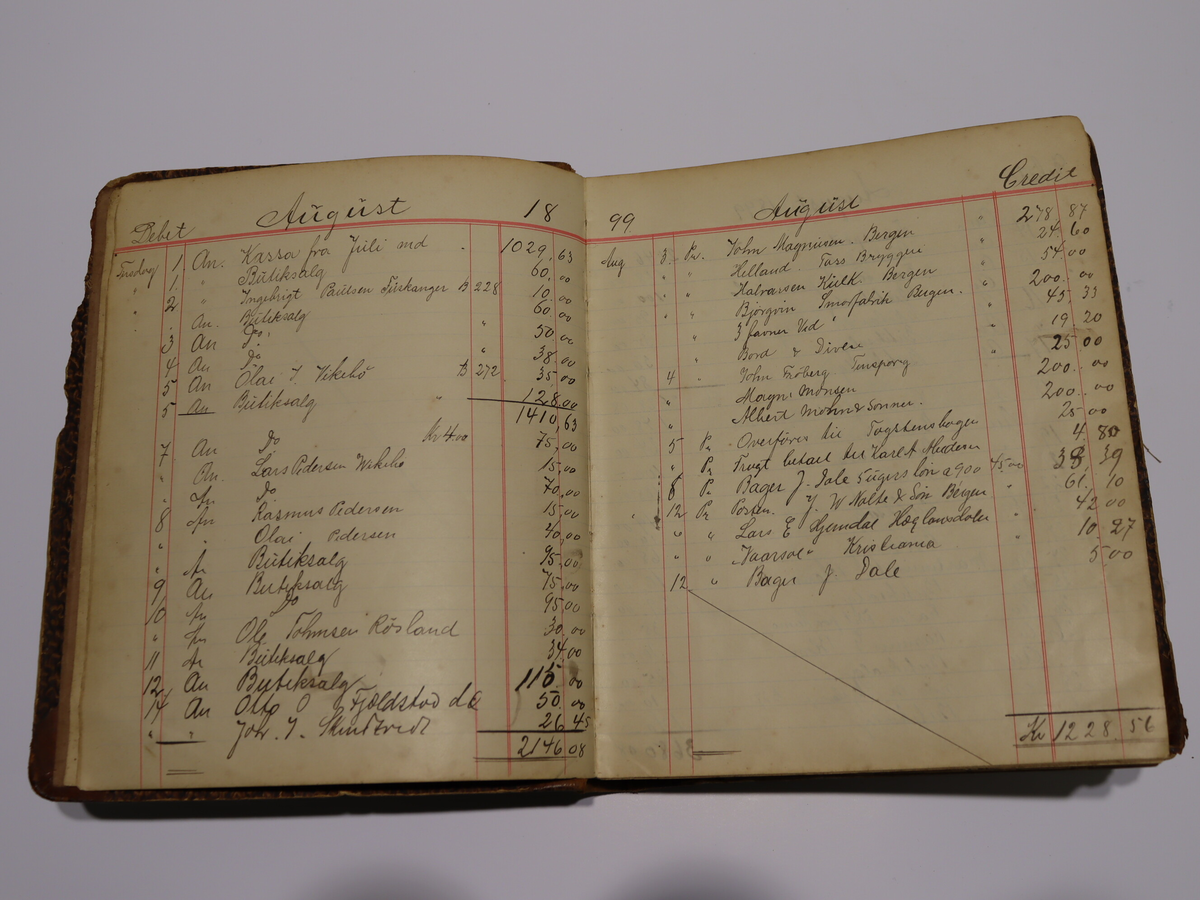 Debet August 18
Tirsdag 1 An. Kassa fra Juli md. 1029,63
" 1 " Butiksalg 60,00
" 2 " Ingebrigt Paulsen B 228 10,00
. An. Butiksalg 60,00
3 An Do " 50,00
4 An Do " 38,00
5 An Olai J. Vikebø B 272 35,00
5 An Butiksalg " 128,00
1410,63
7 An Do Kr 400 75,00
" An. Lars Pedersen Vikebø 15,00
" An Do 70,00
8 An Rasmus Pedersen 15,00
" " Olai Pedersen 40,00
" An Butiksalg 95,00
9 An Butiksalg 75,00
10 An Do 95,00
" An Ole Johnsen Røsland 30,00
11 An Butiksalg 34,00
12 An Butiksalg 115,00
14 An Otto O Fjeldstad 50,00
" " Joh. J. 26,45
2146,08
99 August Credit
Aug 3 Pr. John Magnusen. Bergen " 278 87
" " Helland. Bryggeri " 24 60
" " Halvorsen Bergen " 54,00
" " Bjørgvin Smørfabrik Bergen. " 200,00
" 3 favner Ved " 45 33
" Bord & Diverse " 19 20
4 " John Frøberg 25,00
" Magn. Monsen 200,00
" Albert Mohn & Sønner 200,00
5 Pr Overføres til 25,00
" Pr Fragt betalt 4 80
8 Pr Bager J. Dale a 900 45,00 39
12 Pr Posten. J. W Nolte & Søn Bergen " 61,10
" " Lars E Hjemdal " 42 00
" " Kristiania " 10,27
12 " Bager J. Dale 5 00
Kr 1228,56